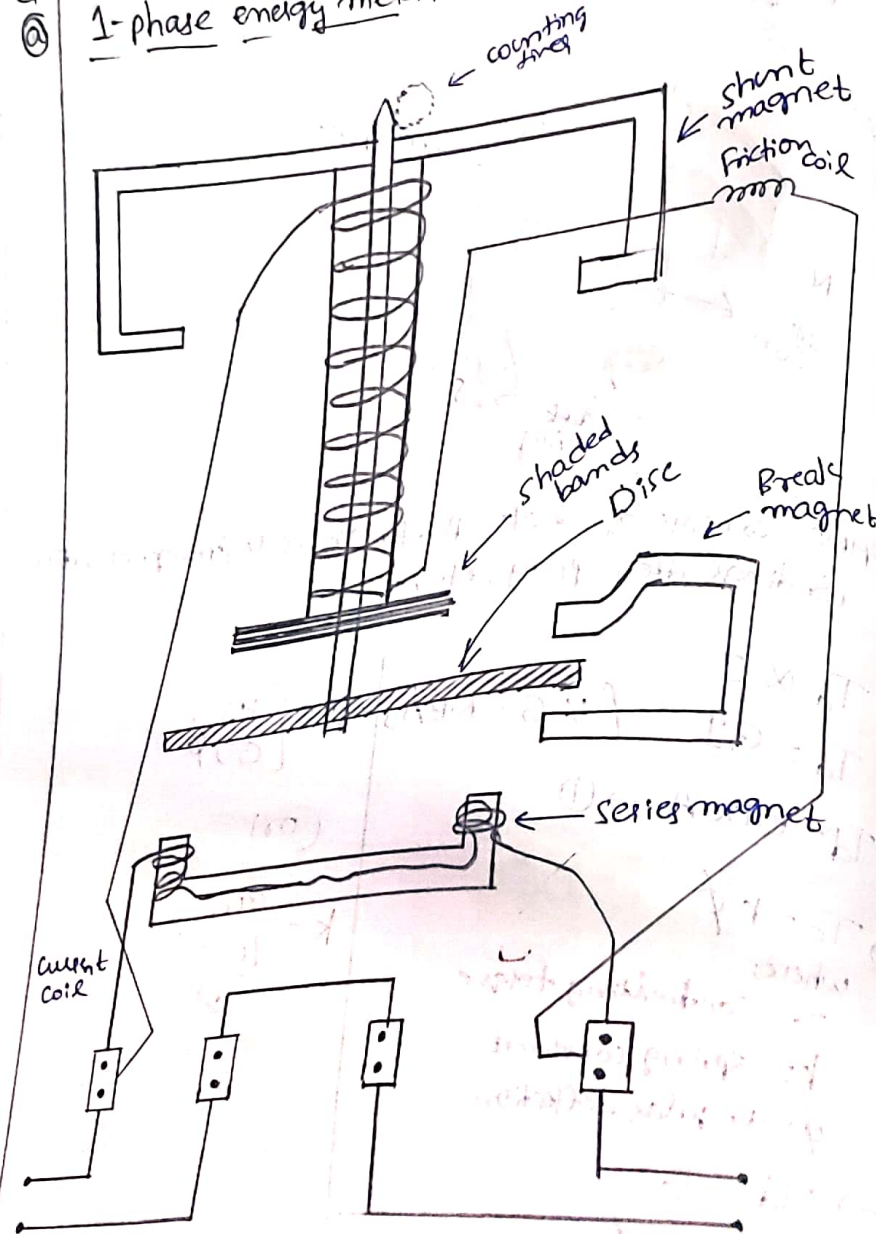 ⓐ 1-phase energy
counting
shunt
magnet
Friction coil
shaded
bands
Disc
Break
magnet
series magnet
current
coil